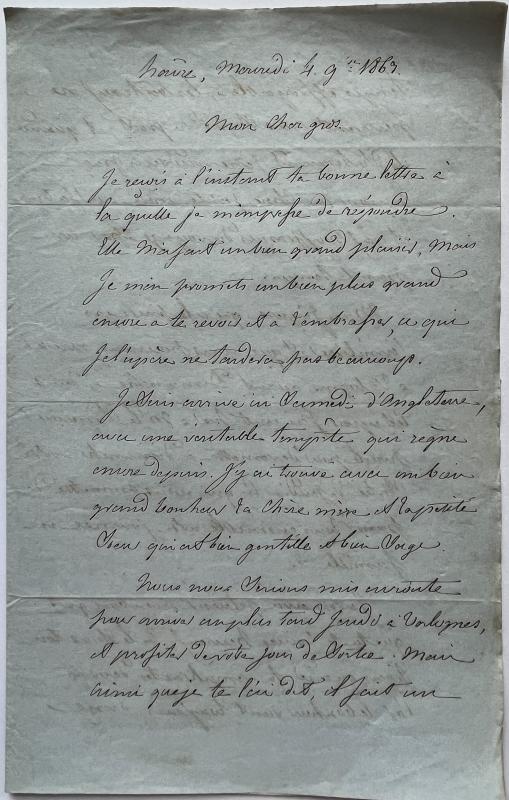 havre, Mercredi 4 9bre 1863.
Mon Cher gros.
Je reçois à l'instant ta bonne lettre à
la quelle je m'empresse de répondre.
Elle m'a fait un bien grand plaisir, Mais
Je m'en promets un bien plus grand
encore a te revoir et a t'embrasser, ce qui
Je l'espère ne tardera pas beaucoup.
Je Suis arrivé ici Samedi d'Angleterre,
avec une véritable tempête qui règne
encore depuis. J'y ai trouvé avec un bien
grand bonheur ta chère mère et la petite
Soeur qui est bien gentille et bien Sage.
Nous nous Serions mis en route
pour arriver au plus tard Jeudi à Valognes,
et profiter de votre jour de Sortie. Mais
ainsi que je te l'ai dit, il fait un